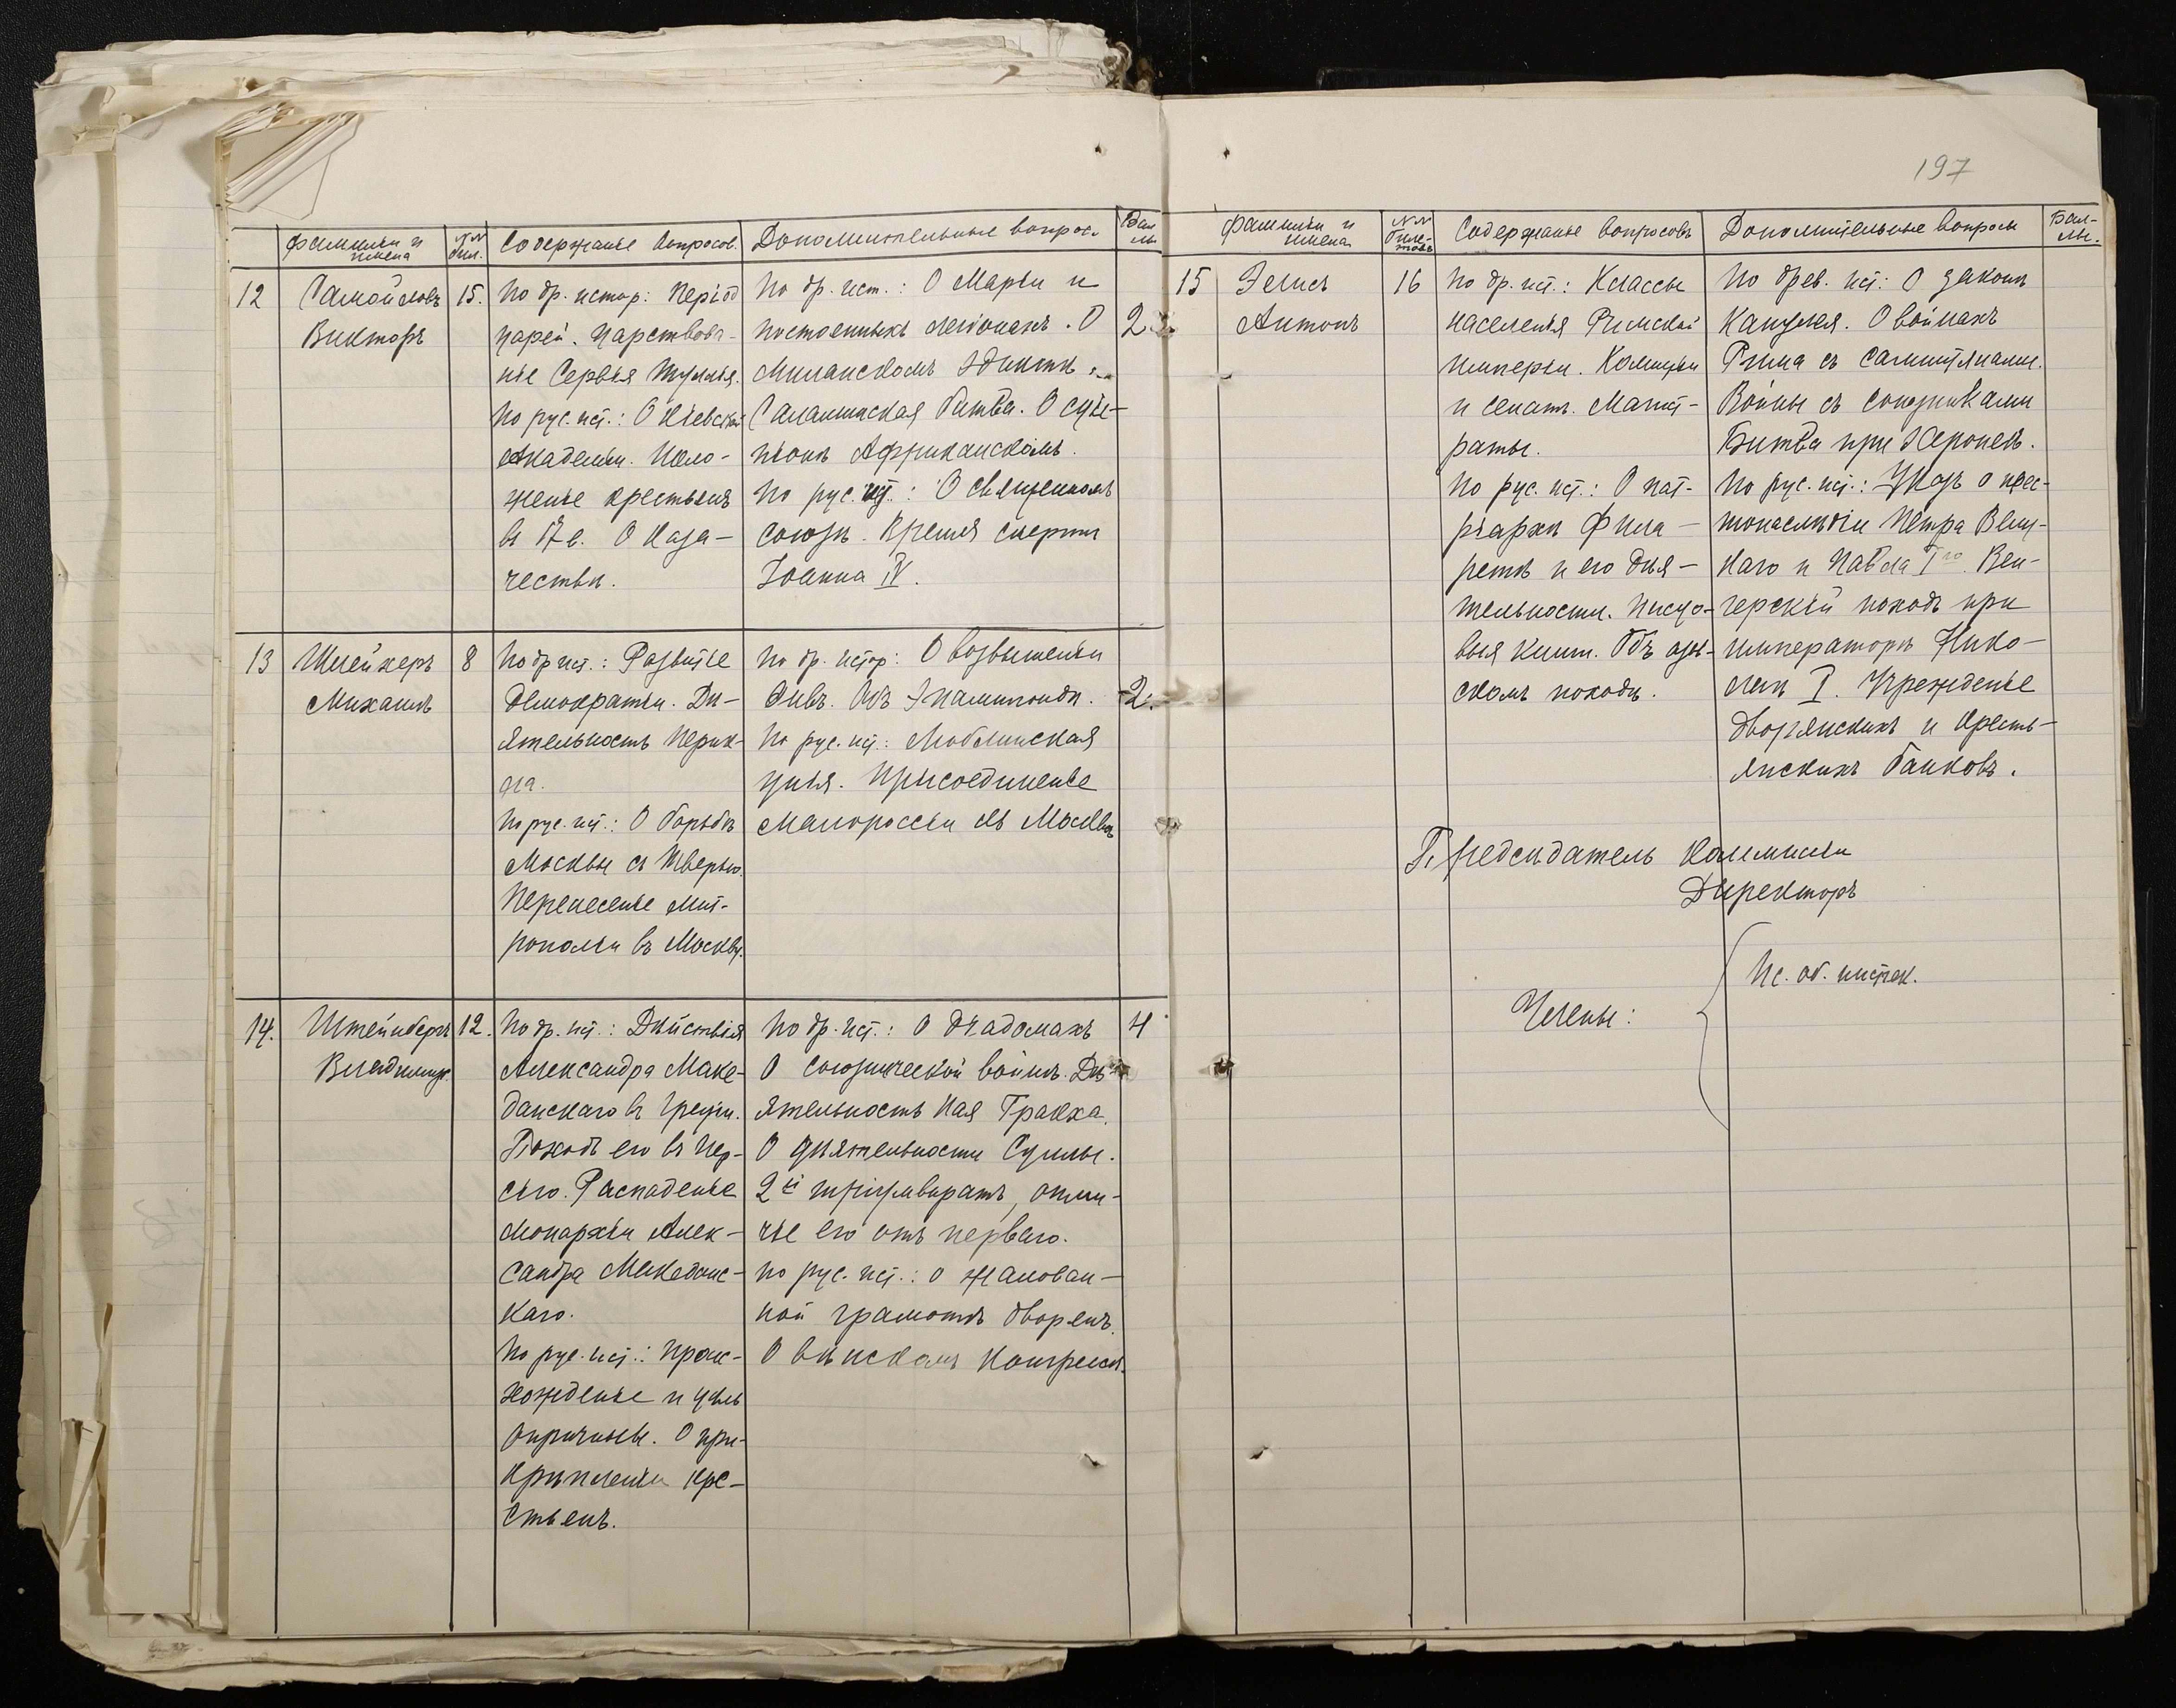 197
Фамиліи и имена
NN бил.
Содержаніе вопросов.
Дополнительные вопрос.
Баллы
12
Самойловъ
Викторъ
15.
По др. истор: Періодъ
царей. Царствова-
ніе Сервія Туллія.
По рус. ист.: О Кіевской
Академіи. Поло-
женіе крестьянъ
въ 17 в. О Каза-
чествѣ.
По др. ист.: О Маріи и
постоенныхъ легіонахъ. О
Миланскомъ Эдиктѣ.
Саламинская битва. О Сци-
піонѣ Африканскомъ.
По рус. ист.: О священномъ
союзѣ. Время смерти
Іоанна IV.
2
13
Шлейхеръ
Михаилъ
8
По др. ист.: Развитіе
демократіи. Дѣ-
ятельность Перик-
ла.
По рус. ист.: О борьбѣ
Москвы съ Тверью.
Перенесеніе мит-
рополіи въ Москву.
По др. истор: О возвышеніи
Ѳивъ. Объ Эпаминондѣ.
По рус. ист.: Люблинская
унія. Присоединеніе
Малороссіи къ Москвѣ
2.
14.
Штейнбергъ
Владиміръ.
12.
По др. ист.: Дѣйствія
Александра Маке-
донскаго въ Греціи.
Походъ его въ Пер-
сію. Распаденіе
монархіи Алек-
сандра Македонс-
каго.
По рус. ист.: Проис-
хожденіе и цѣль
опричины. О при-
крѣпленіи кре-
стьянъ.
По др. ист.: О діадохахъ
О Союзнической войнѣ. Дѣ-
ятельность Кая Гракха.
О дѣятельности Суллы.
2й тріумвиратъ, отли-
чіе его отъ перваго.
По рус. ист.: О жалован-
ной грамотѣ дворянъ.
О вѣнскомъ Конгрессѣ.
4
Фамиліи и имена
NN билетовъ
Содержаніе вопросовъ
Дополнительные вопросы
Бал-
лы.
15
Зелисъ
Антонъ
16
По др. ист.: Классы
населенія Римской
Имперіи. Комиціи
и сенатъ. Магист-
раты.
По рус. ист.: О пат-
ріархѣ Фила-
ретѣ и его дѣя-
тельности. Писцо-
выя книги. Объ азов-
скомъ походѣ.
По древ. ист: О законѣ
Канулея. О войнахъ
Рима съ Самнитянами.
Войны съ союзниками
Битва при Херонеѣ.
По рус. ист.: Указъ о прес-
толонаслѣдіи Петра Вели-
каго и Павла Iго. Вен-
герскій походъ при
императорѣ Нико-
лаѣ I. Учрежденіе
дворянскихъ и кресть-
янскихъ банковъ.
Г. Предсѣдатель Коммисіи
Директоръ
Ис. об. инспек.
Члены: